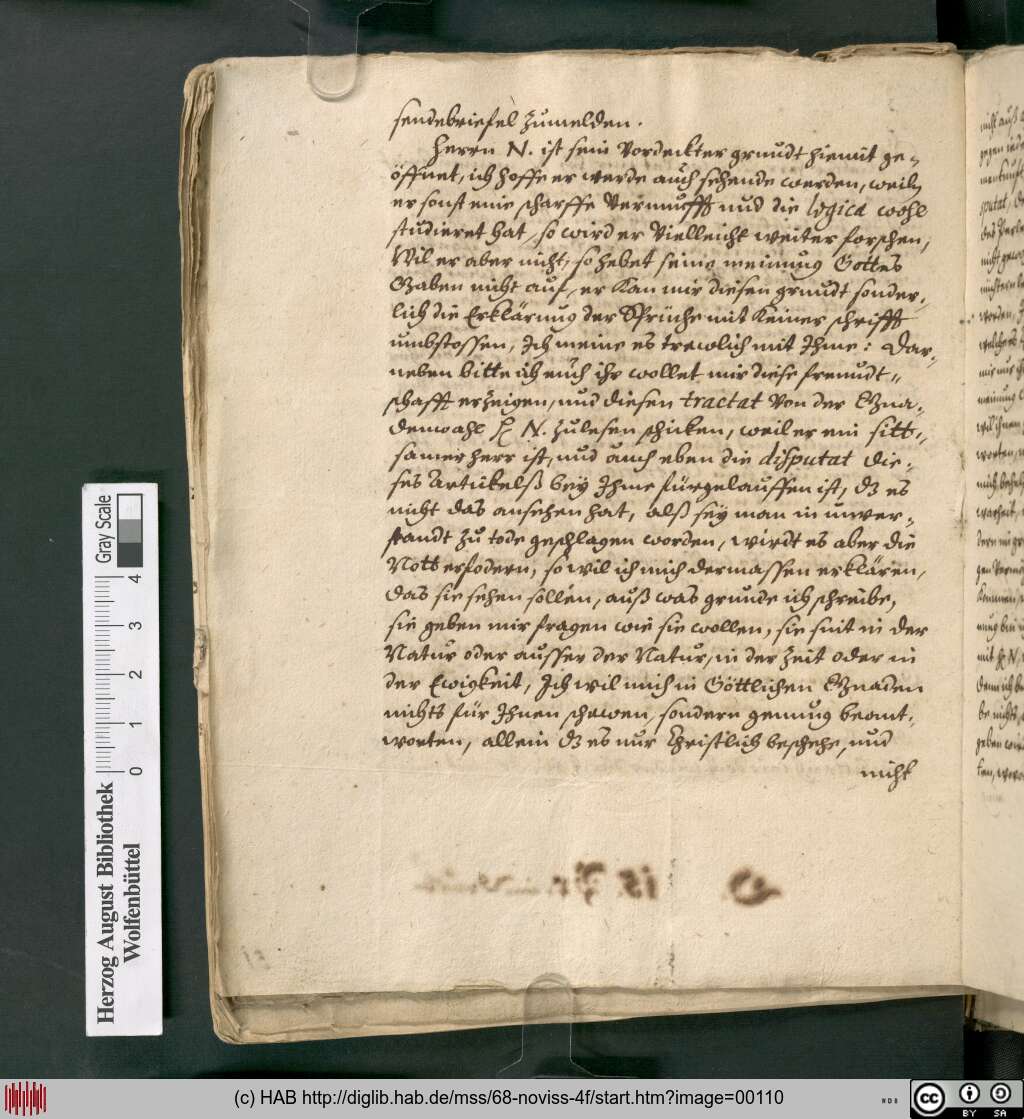 sendebriefel zumelden.
Herrn N. ist sein Verdeckter grundt hiemit ge-
öffnet, ich hoffe er werde auch sehende werden, weiln
er sonst eine scharffe Vernunfft und die logica wohl
studieret hat, so wird er Vielleicht weiter forschen,
Wil er aber nicht, so hebet seine meinung Gottes
Gaben nicht auf, er kan mir diesen grundt sonder-
lich die Erklärung der Sprüche mit keiner schrifft
umbstossen, Ich meine es trewlich mit Ihme: Dar-
neben bitte ich euch ihr wollet mir diese freundt-
schafft erzeigen, und diesen tractat von der Gna-
denwahl H N. zulesen schicken, weil er ein sitt-
samer herr ist, und auch eben die disputat die-
ses Artickelß bey Ihme fürgelauffen ist, dz es
nicht das ansehen hat, alß sey man in unver-
standt zu tode geschlagen worden, wirdt es aber die
Nott erfodern, so wil ich mich dermassen erklären,
das sie sehen sollen, auß was grunde ich schreibe,
sie geben mir fragen wie sie wollen, sie seint in der
Natur oder ausser der Natur, in der Zeit oder in
der Ewigkeit, Ich wil mich in Göttlichen Gnaden
nichts für Ihnen schewen, sondern genung beant-
worten, allein dz es nur Christlich beschehe, und
nicht
Herzog August Bibliothek
Wolfenbüttel
Gray Scale
0 1 2 3 4
(c) HAB http://diglib.hab.de/mss/68-noviss-4f/start.htm?image=00110
cc BY SA